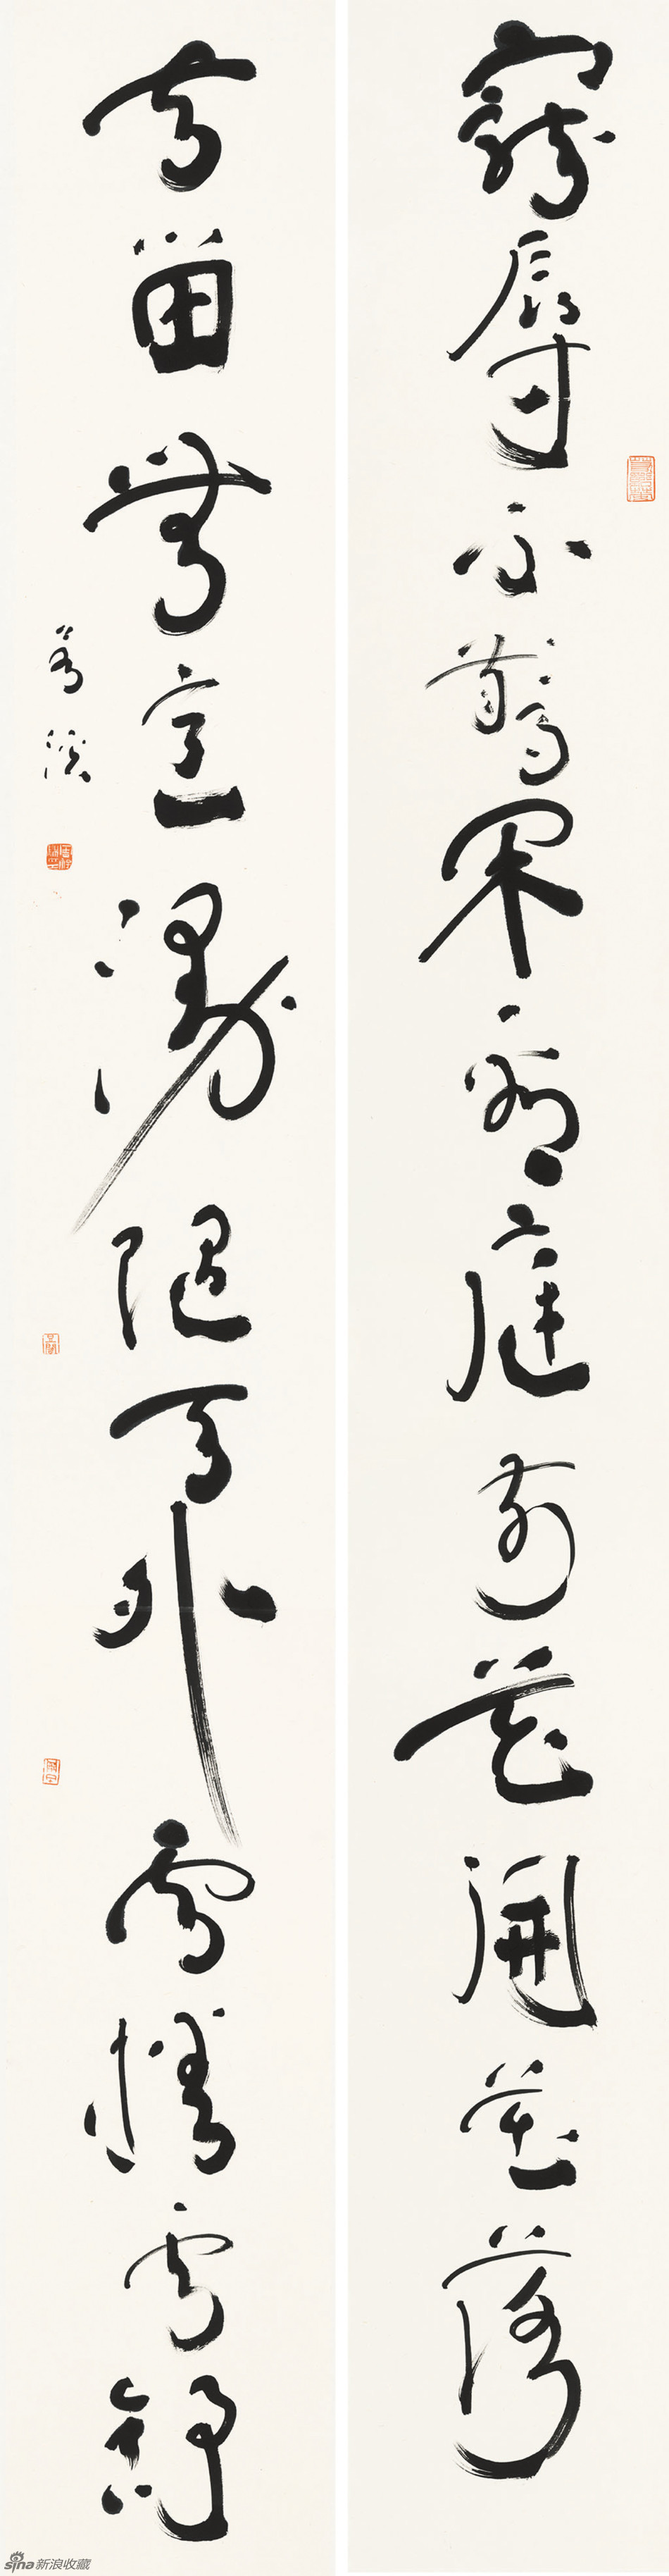 寵辱不驚閑看庭前花開花落
去留無意漫隨天外雲捲雲舒
sina新浪收藏